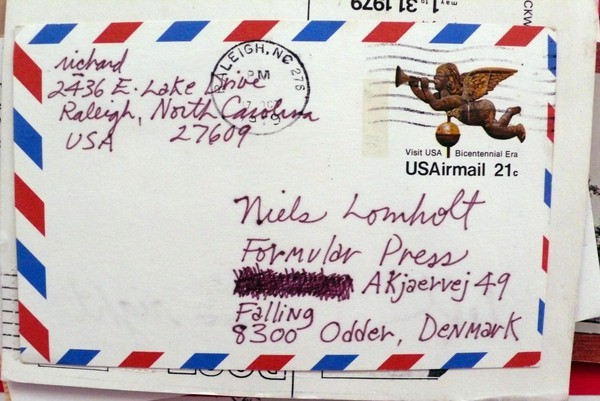 1979
richard
2436 E. Lake Drive
Raleigh, North Carolina
USA 27609
RALEIGH, NC 276
PM
Visit USA Bicentennial Era
USAirmail 21c
Niels Lomholt
Formular Press
AKjaervej 49
Falling
8300 Odder, DENMARK